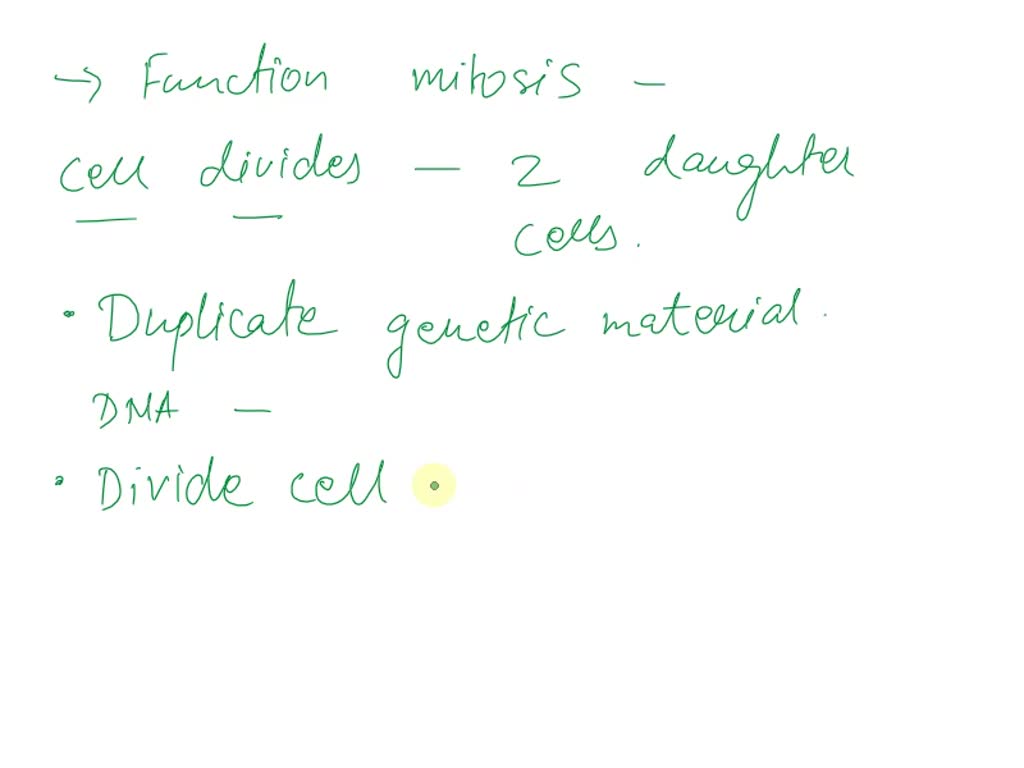 → Function mitosis –
cell divides – 2 daughter
cells.
• Duplicate genetic material.
DNA –
• Divide cell